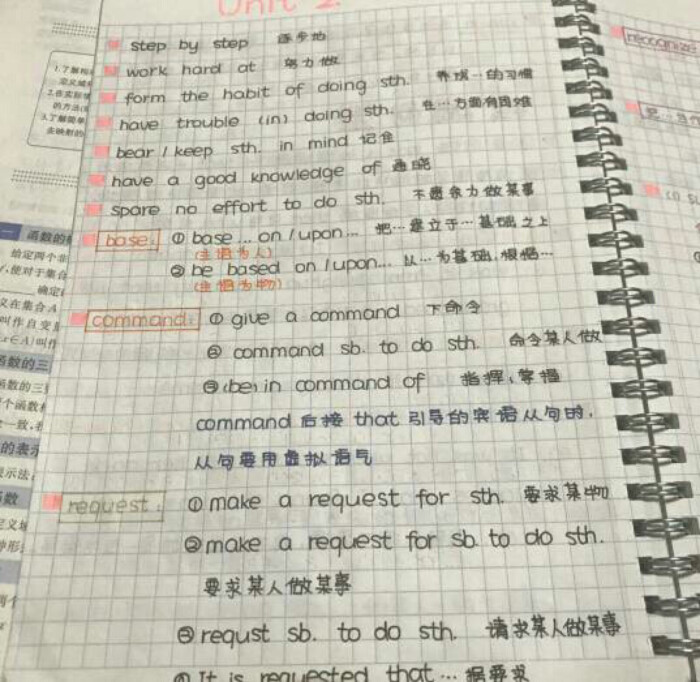 Unit 2
step by step 逐步地
work hard at 努力做
form the habit of doing sth. 养成…的习惯
have trouble (in) doing sth. 在…方面有困难
bear / keep sth. in mind 记住
have a good knowledge of 通晓
spare no effort to do sth. 不遗余力做某事
base. ① base ... on / upon ... 把…建立于…基础之上
(主语为人)
② be based on / upon ... 以…为基础,根据…
(主语为物)
command. ① give a command 下命令
② command sb. to do sth. 命令某人做
③ (be) in command of 指挥,掌握
command 后接 that 引导的宾语从句时,
从句要用虚拟语气
request. ① make a request for sth. 要求某物
② make a request for sb. to do sth.
要求某人做某事
③ requst sb. to do sth. 请求某人做某事
④ It is requested that ... 据要求
recognize
1.了解构
2.在实际
的方法(
3.了解简单
去映射的
函数的
给定两个非
,使对于集合
确定
义在集合A
叫作自变量
x∈A)叫作
函数的三
函数的三
个函数
一致,
的表示
表示法
函数
定义域